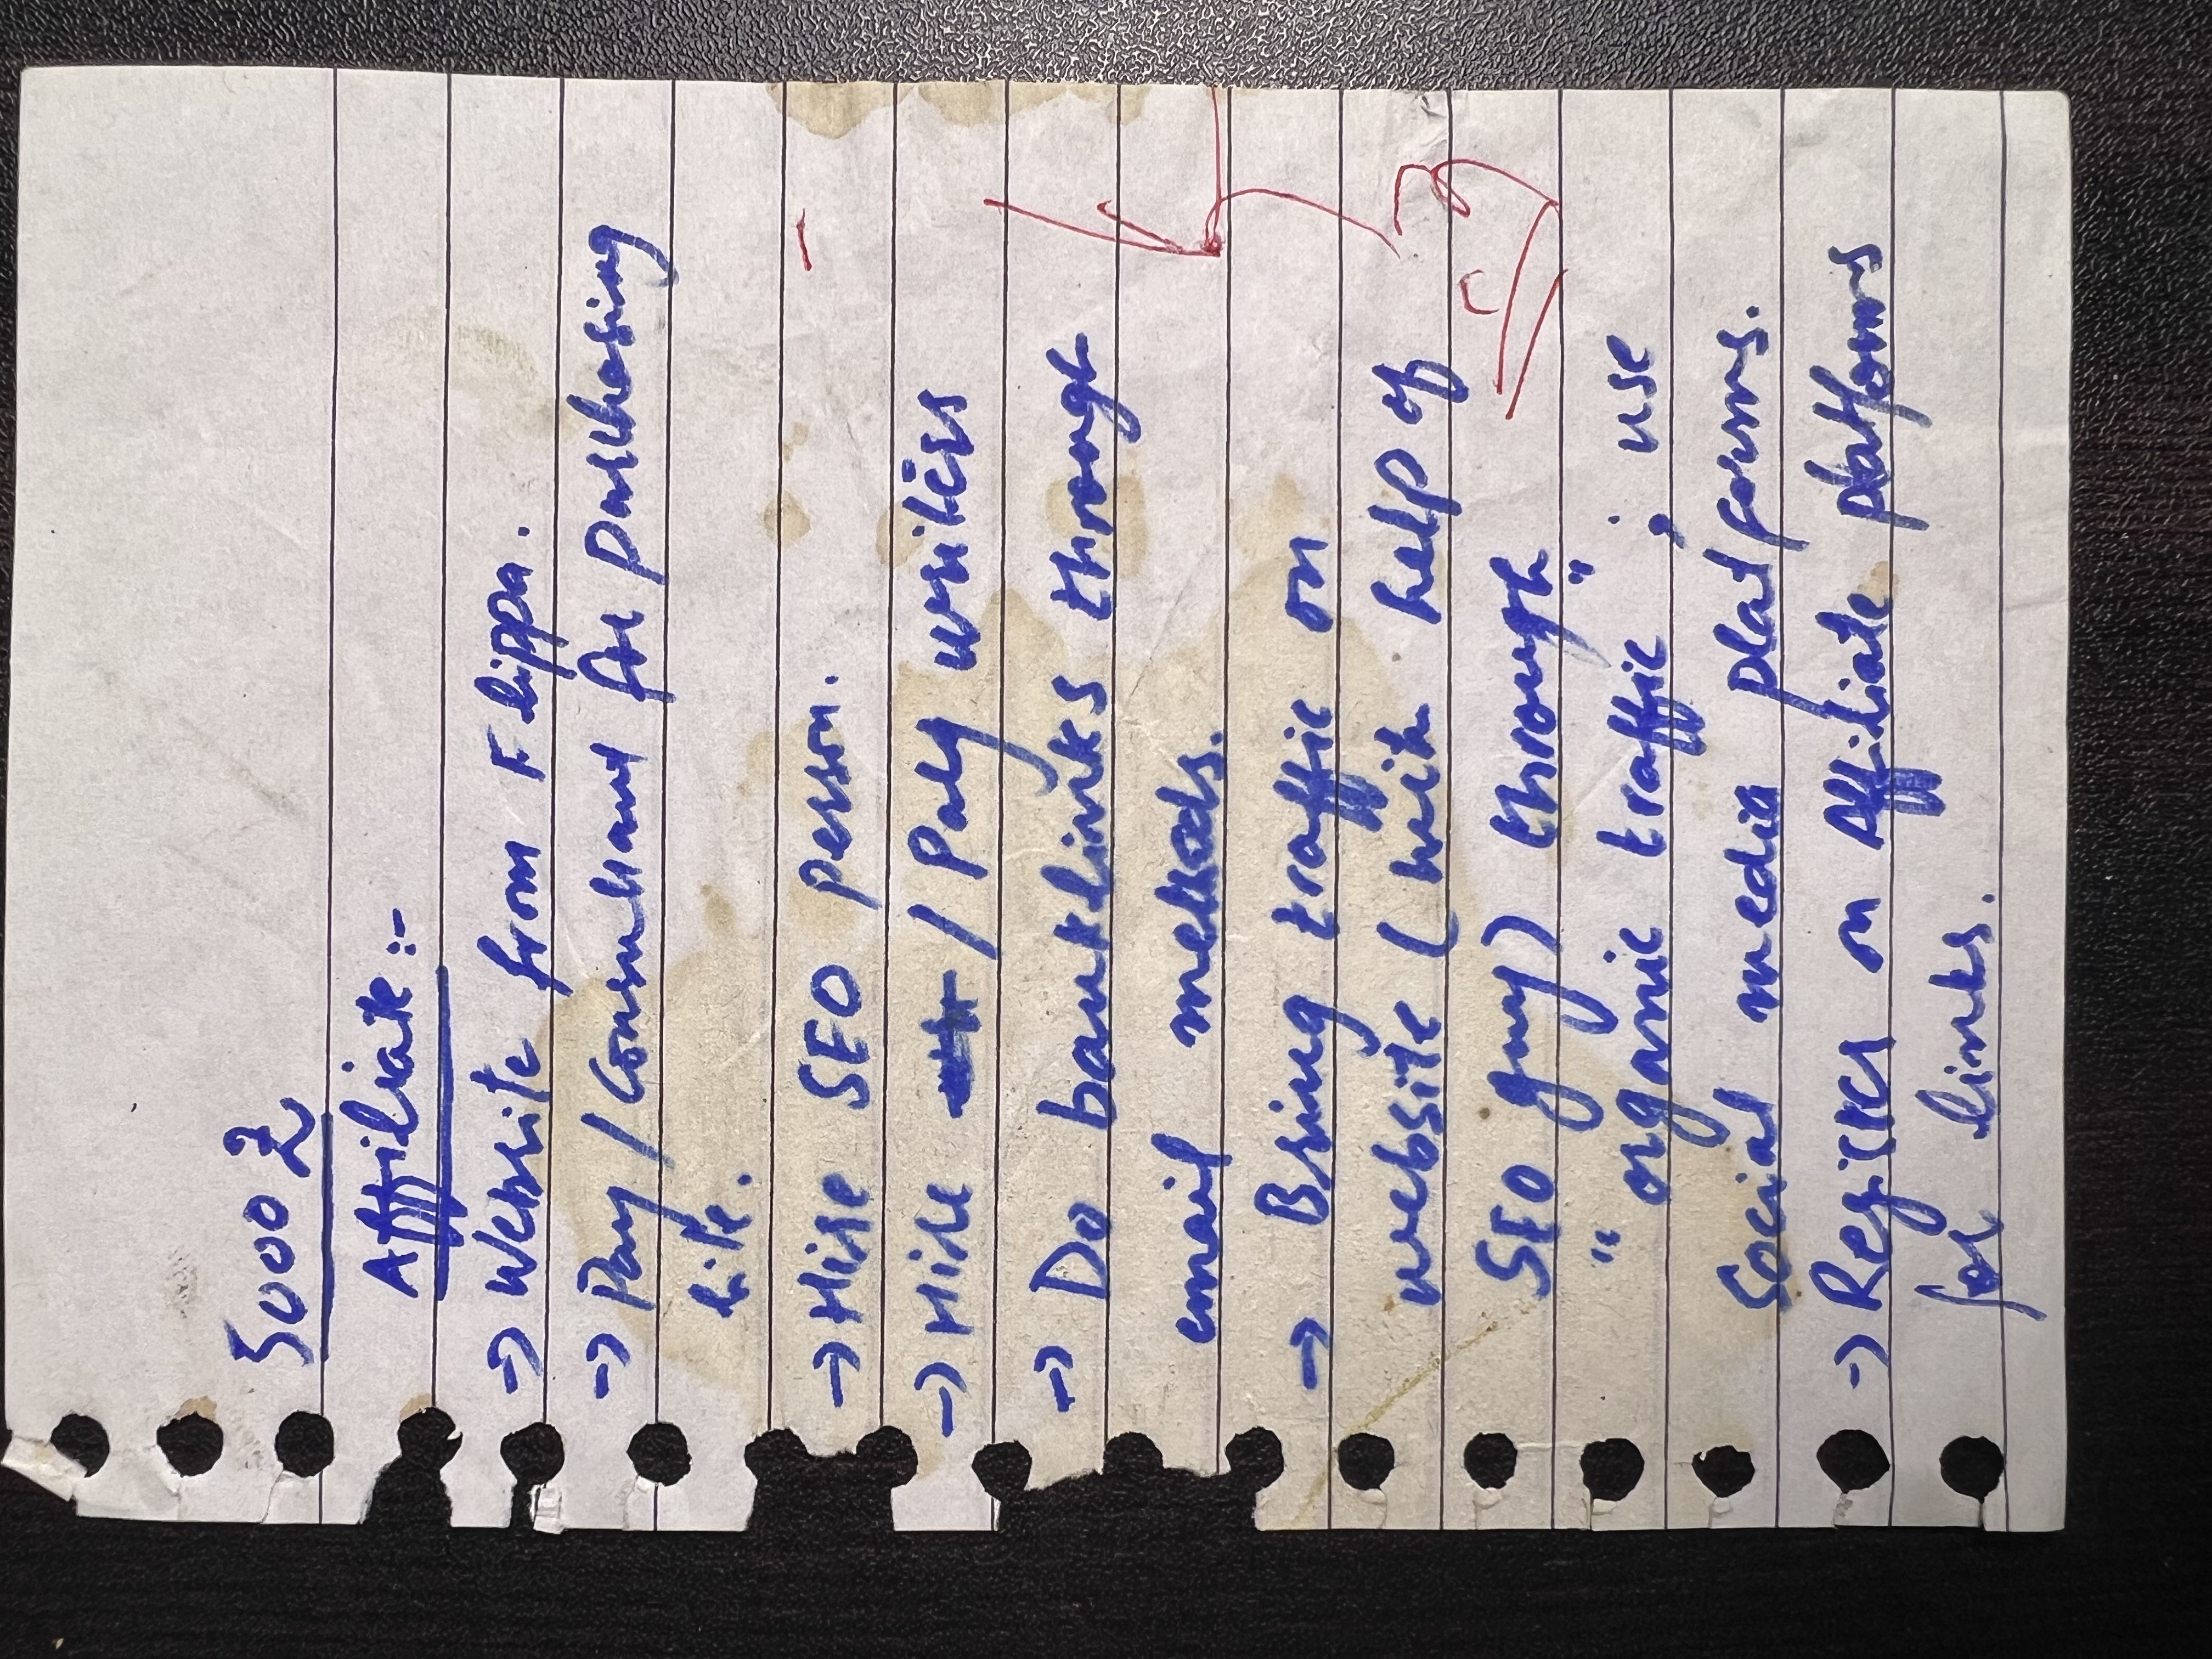 5000
Affiliate :-
→ Website from Flippa.
→ Pay / Consultant for purchasing
site.
→ Hire SEO person.
→ Hire / Paly writers
→ Do banklinks through
email methods.
→ Bring traffic on
website (with help of
SEO guy) through
"organic traffic" ; use
Social media platforms.
→ Register on Affiliate platforms
for links.